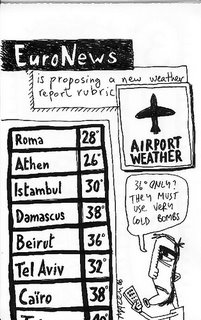 EuroNews
is proposing a new weather
report rubric
AIRPORT
WEATHER
Roma 28°
Athen 26°
Istambul 30°
Damascus 38°
Beirut 36°
Tel Aviv 32°
Caïro 38°
40°
32° ONLY?
THEY MUST
USE VERY
COLD BOMBS